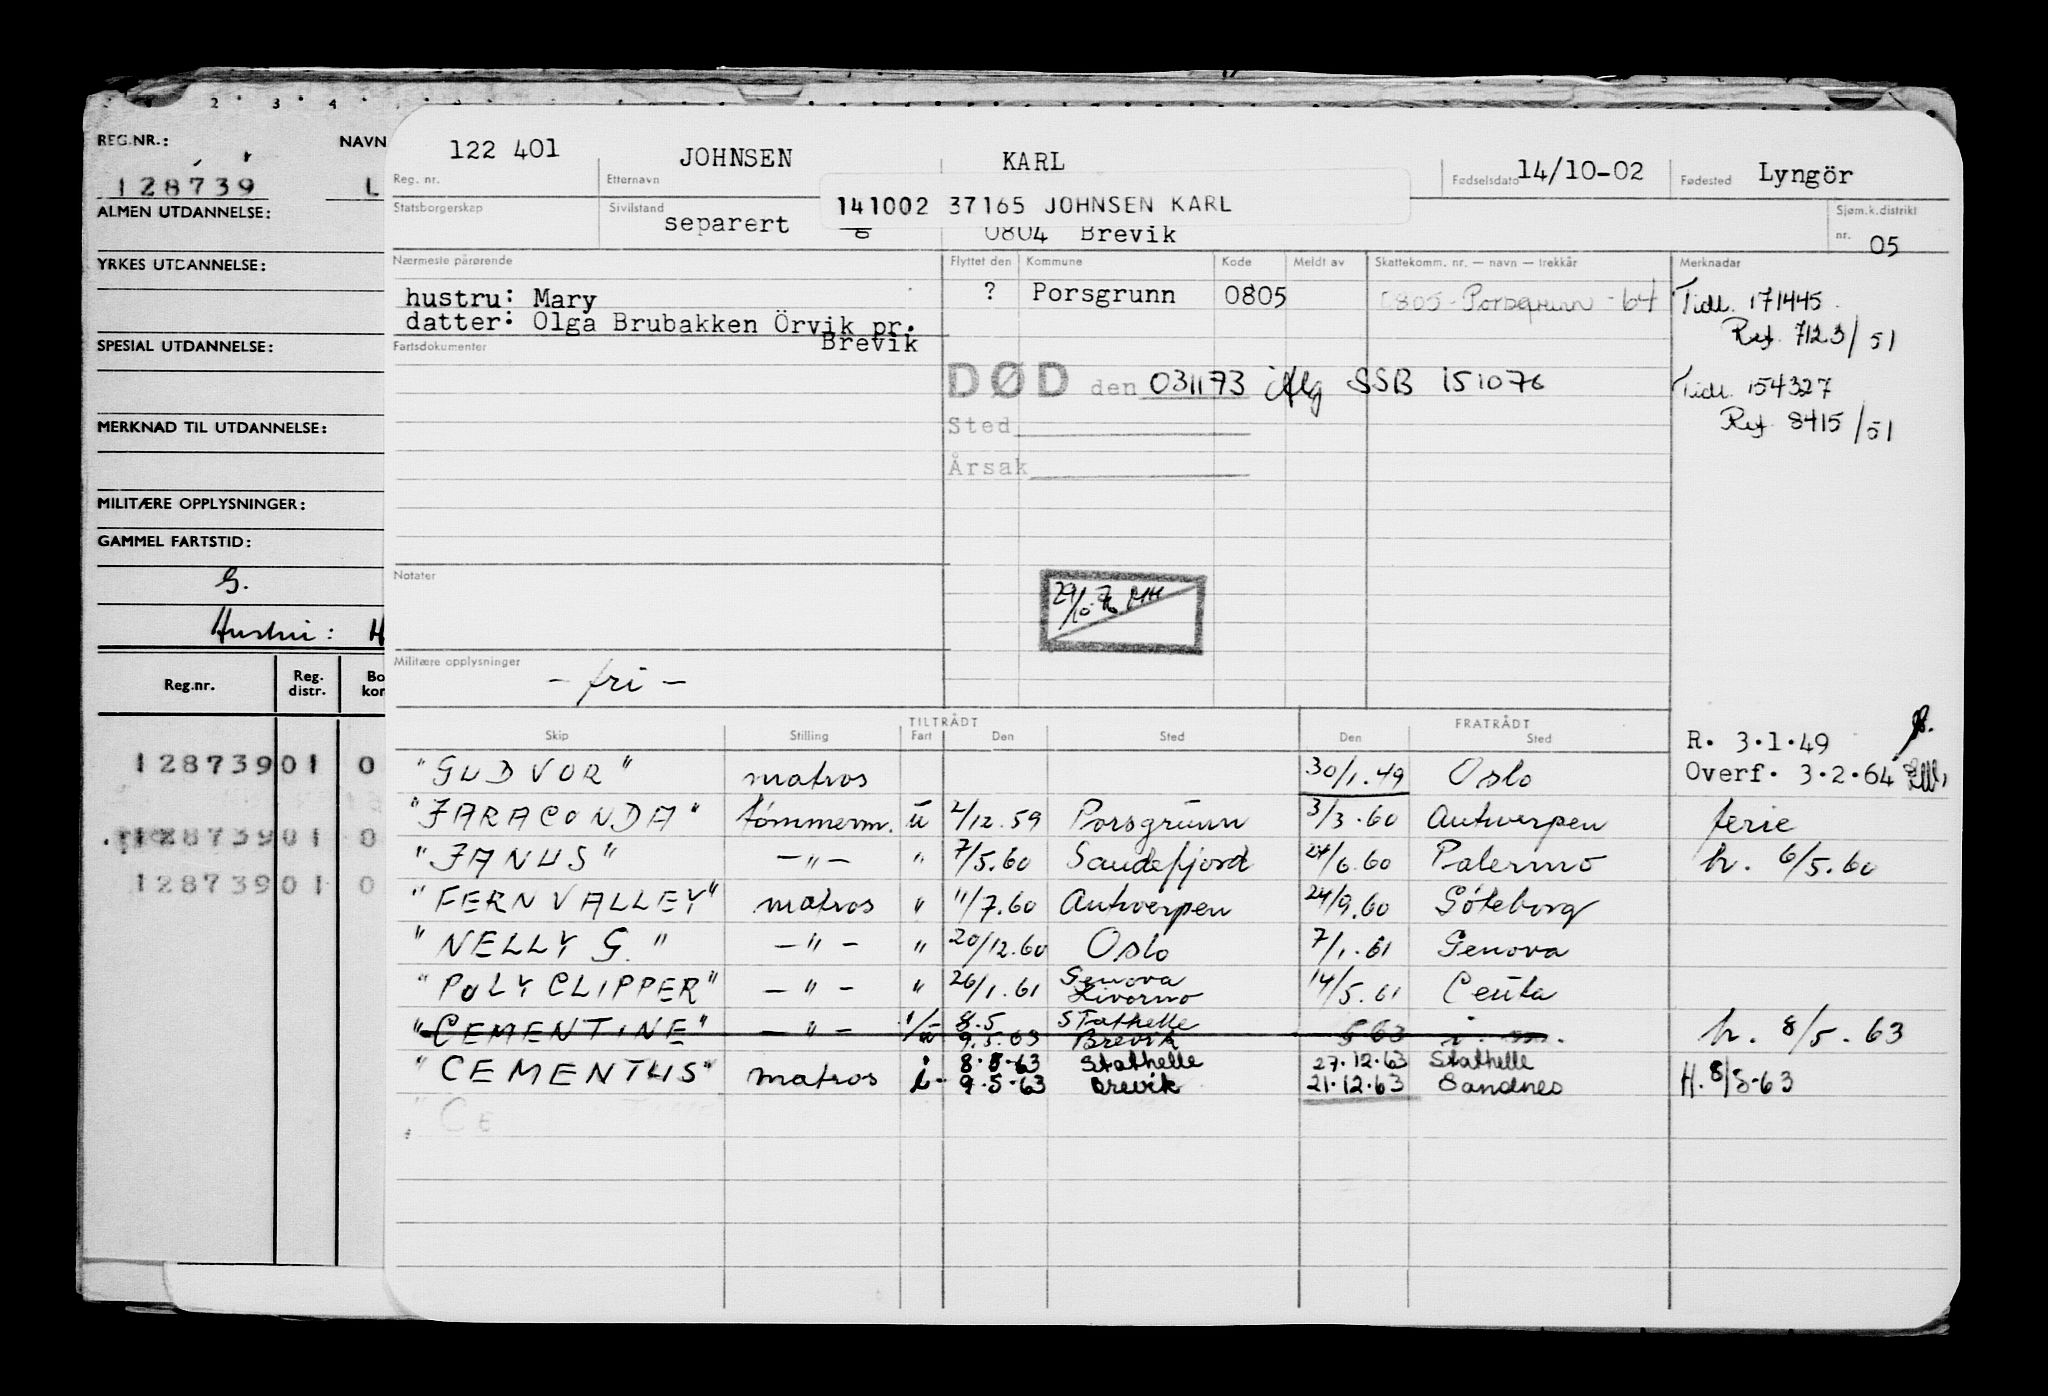 REG.NR.:
NAVN
128739
L
ALMEN UTDANNELSE:
YRKES UTDANNELSE:
SPESIAL UTDANNELSE:
MERKNAD TIL UTDANNELSE:
MILITÆRE OPPLYSNINGER:
GAMMEL FARTSTID:
G.
Hustru: H
Reg.nr. Reg. distr. Bo kor
128739 01 0
128739 01 0
128739 01 0
122 401 JOHNSEN KARL 14/10-02 Lyngör
Reg. nr. Etternavn Fødselsdato Fødested
141002 37165 JOHNSEN KARL
Statsborgerskap Sivilstand Sjøm.k.distrikt
separert 0804 Brevik nr. 05
Nærmeste pårørende Flyttet den Kommune Kode Meldt av Skattekomm. nr. — navn — trekkår Merknader
hustru: Mary ? Porsgrunn 0805 0805 - Porsgrunn - 64 Tidl. 171445
datter: Olga Brubakken Örvik pr.
Brevik
Ref. 7123/51
Fartsdokumenter
DØD den 031173 SSB 151076
Tidl. 154327
Ref. 8415/51
Sted
Årsak
Notater
Militære opplysninger
- fri -
TILTRÅDT FRATRÅDT
Skip Stilling Fart Den Sted Den Sted
R. 3.1.49
Overf. 3.2.64
"GUDVOR" matros 30/1.49 Oslo
"JARACONDA" tømmerm. u 2/12.59 Porsgrunn 3/3.60 Antwerpen ferie
"JANUS" -"- " 7/5.60 Sandefjord 24/6.60 Palermo h. 6/5.60
"FERNVALLEY" matros " 11/7.60 Antwerpen 24/9.60 Göteborg
"NELLY G." -"- " 20/12.60 Oslo 7/1.61 Genova
"POLYCLIPPER" -"- " 26/1.61 Genova Livorno 14/5.61 Ceuta
"CEMENTINE" -"- i/u 8.5 Stathelle
9.5.63 Brevik 5 63 i. m. h. 8/5.63
"CEMENTUS" matros i 8.5.63 Stathelle 27.12.63 Stathelle
i- 9.5.63 Brevik 21.12.63 Sandnes H. 8/5-63
"Ce